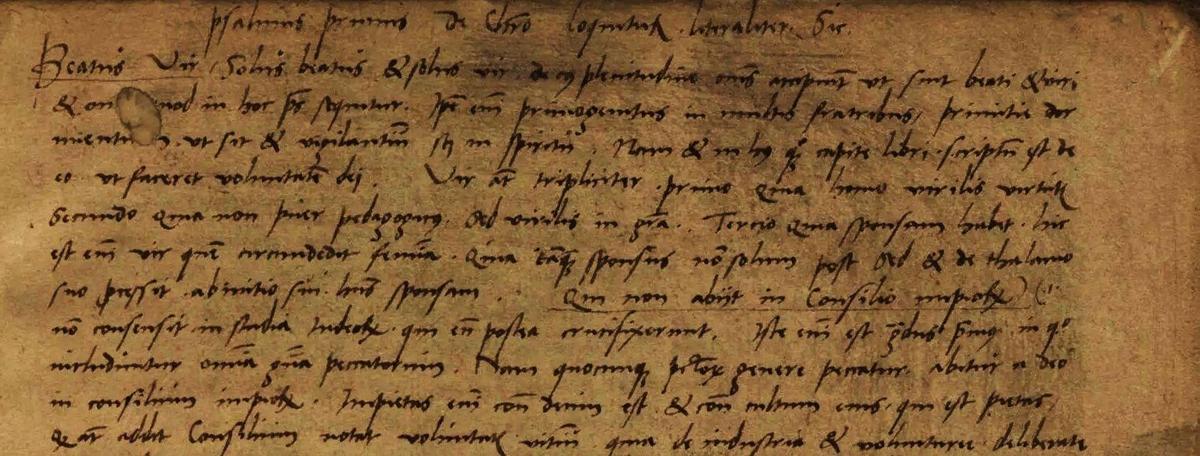 psalmus primus De Chro loquitur literaliter. Sic.
Beatus Vir. Solus beatus & solus vir de cuius plenitudine oms accipiunt ut sint beati & viri
& quod in hoc ps sequitur. Ipse em primogenitus in multis fratribus, primitie dor
mientiu ut sit & vigilantium in spiritu. Nam & in capite libri scriptu est de
eo ut faceret voluntate dei. Vir at tripliciter. primo Quia homo virilis virtutis
Secundo Quia non puer pedagogicus, sed virilis in gra. Tercio quia sponsam habet. hic
est em vir que circumdedit femina. Quia sponsus no solum post sed & de thalamo
suo pcessit. ab initio sui hns sponsam. Qui non abijt in Consilio impioru
no consensit in studia Iudeoru qui eu postea crucifixerunt. Iste em est primus in quo
includuntur omia gna peccatorum. Nam quocumque genere peccatur abitur a deo
in consilium impioru. Impietas em cont deum est & cont cultum eius, qui est pietas,
Q at addit Consilium notat voluntatis vitiu quia de industria & voluntarie deliberate